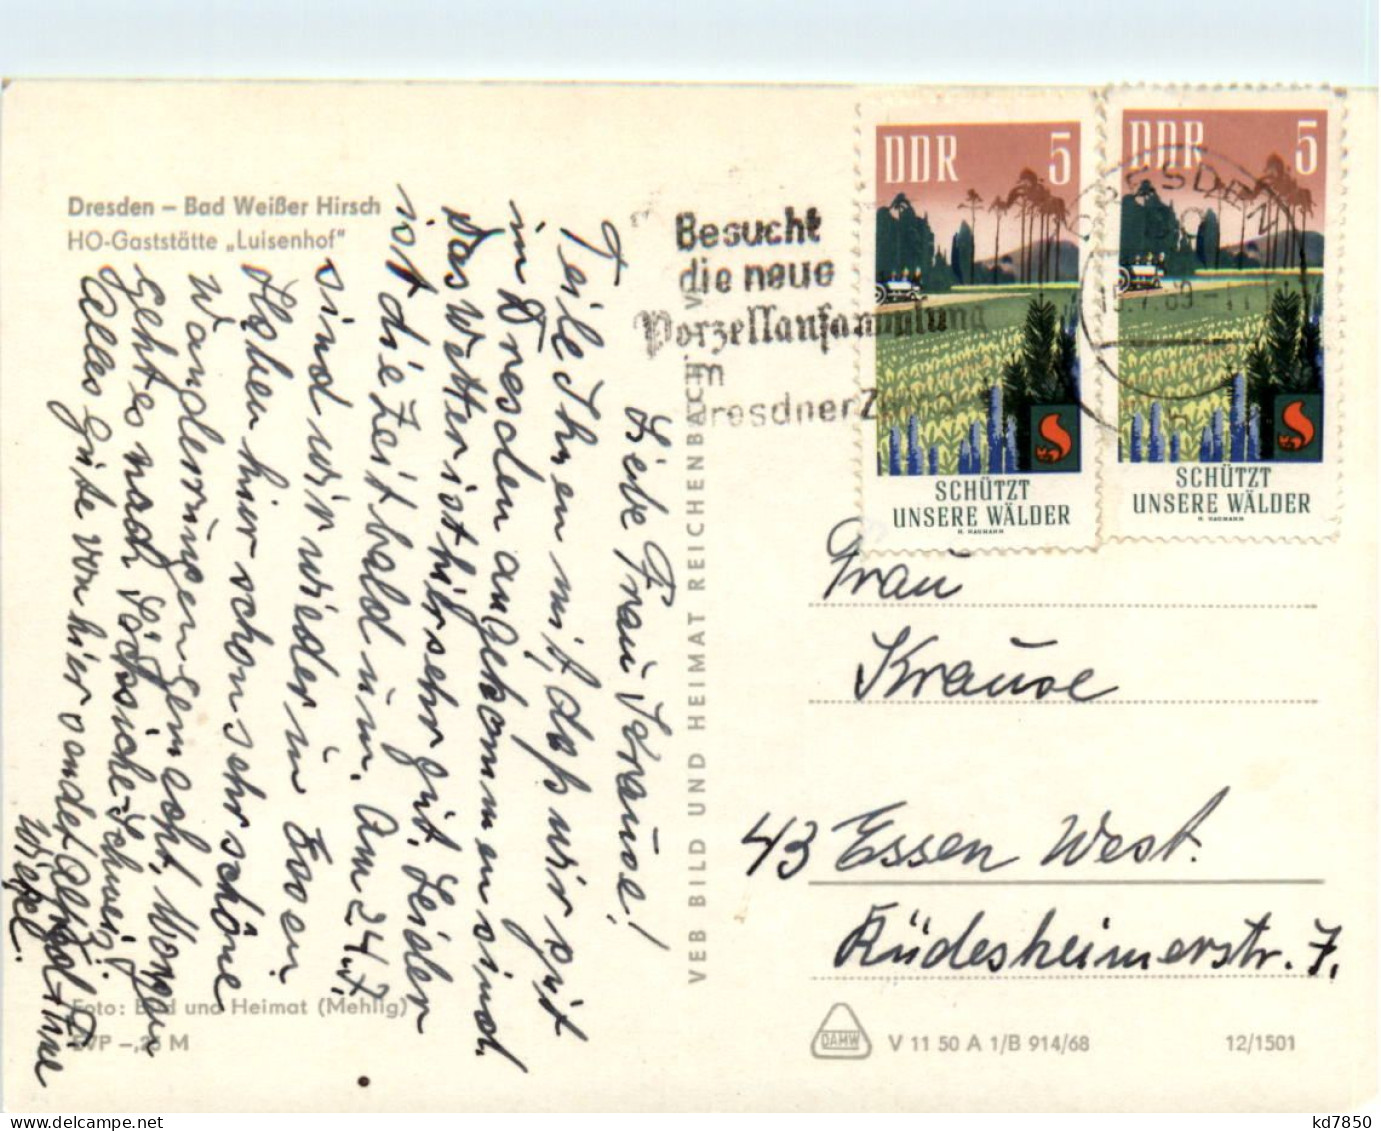 Dresden – Bad Weißer Hirsch
HO-Gaststätte „Luisenhof"
Besucht
die neue
Porzellansammlung
m
DresdnerZ
DDR 5
SCHÜTZT
UNSERE WÄLDER
DDR 5
SCHÜTZT
UNSERE WÄLDER
DRESDEN
.7.69-11
Liebe Frau Krause!
Teile Ihnen mit, daß wir gut
in Dresden angekommen sind.
Das Wetter ist hier sehr gut. Leider
ist die Zeit bald um. Am 24.7.
sind wir wieder in Essen.
Haben hier schon sehr schöne
Wanderungen gemacht. Morgen
geht es nach Sächsische-Schweiz.
Alles Gute von hier sendet Alfred + Ihre
VEB BILD UND HEIMAT REICHENBACH I. V.
Frau
Krause
43 Essen West.
Rüdesheimerstr. 7.
Foto: Bild und Heimat (Mehlig)
EVP –,25 M
DAMW
V 11 50 A 1/B 914/68
12/1501
kd7850